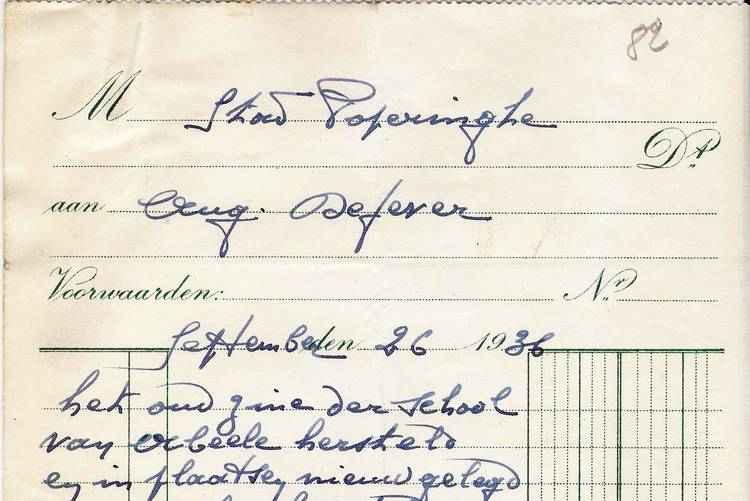 82
M Stad Poperinghe
Dt
aan Aug. Defever
Voorwaarden: Nr
September den 26 1936
het oud zine der school
van Abeele hersteld
en in plaatsen nieuw gelegd